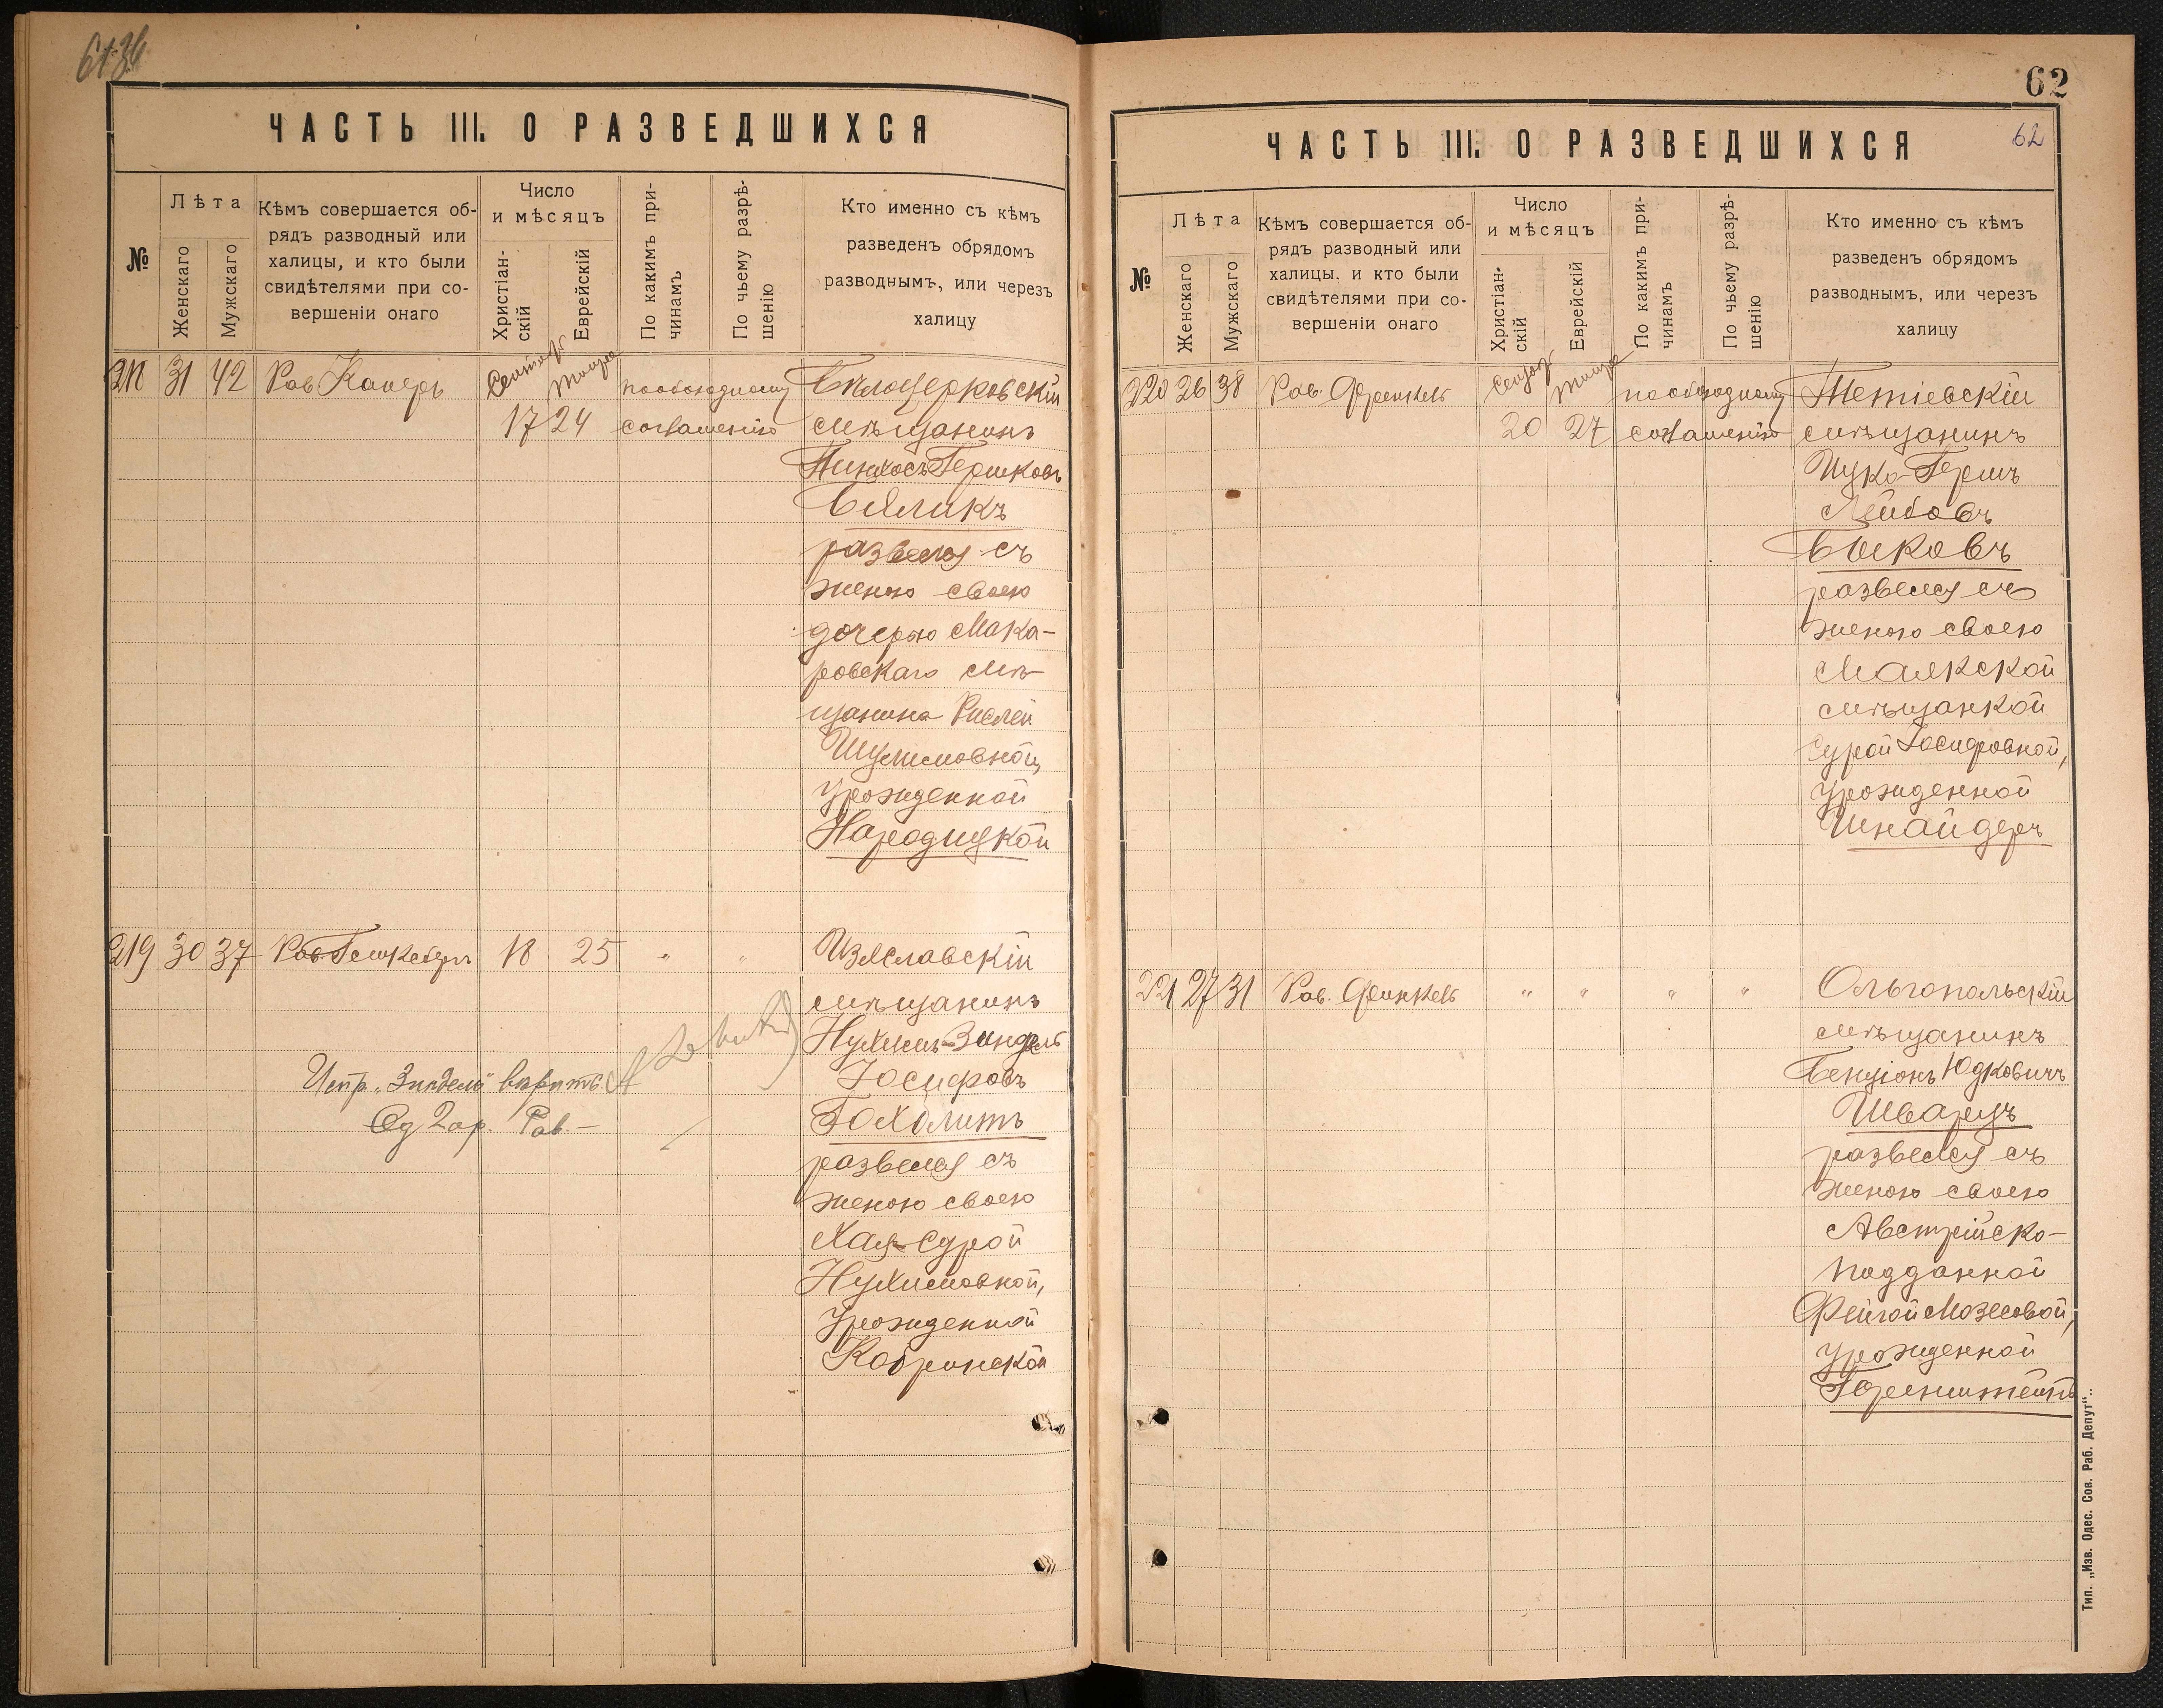 ЧАСТЬ III. О РАЗВЕДШИХСЯ
№
Лѣта
Женскаго
Мужскаго
Кѣмъ совершается об-
рядъ разводный или
халицы, и кто были
свидѣтелями при со-
вершеніи онаго
Число
и мѣсяцъ
Христіан-
скій
Еврейскій
По какимъ при-
чинамъ
По чьему разрѣ-
шенію
Кто именно съ кѣмъ
разведенъ обрядомъ
разводнымъ, или черезъ
халицу
218 31 42 Рав Канеръ пообоюдному Бѣлоцерковскій
17 24 соглашенію мѣщанинъ
Пинхосъ Гершковъ
Бяликъ
развелся съ
женою своею
дочерью Мака-
ровскаго мѣ-
щанина Рислей
Шулимовной,
урожденной
Народицкой
219 30 37 Рав 18 25 " " Изяславскій
мѣщанинъ
Нухимъ-Зиндель
Іосифовъ
Испр. „Зиндель" вѣрить
Од Гор. Рав. –
Гохблитъ
развелся съ
женою своею
Хая-Сурой
Нухимовной,
урожденной
Кобринской
62
62
ЧАСТЬ III. О РАЗВЕДШИХСЯ
№
Лѣта
Женскаго
Мужскаго
Кѣмъ совершается об-
рядъ разводный или
халицы, и кто были
свидѣтелями при со-
вершеніи онаго
Число
и мѣсяцъ
Христіан-
скій
Еврейскій
По какимъ при-
чинамъ
По чьему разрѣ-
шенію
Кто именно съ кѣмъ
разведенъ обрядомъ
разводнымъ, или черезъ
халицу
220 26 38 Рав. Френкель пообоюдному Тетіевскій
20 27 соглашенію мѣщанинъ
Ицко-Гершъ
Лейбовъ
Быковъ
развелся съ
женою своею
Маякской
мѣщанкой
Сурой Іосифовной,
урожденной
Шнайдеръ
221 27 31 Рав. Финкель " " " " Ольгопольскій
мѣщанинъ
Бенціонъ Юдковичъ
Шварцъ
развелся съ
женою своею
Австрійско-
подданной
Фейгой Мозесовой,
урожденной
Горенштейнъ
Тип. „Изв. Одес. Сов. Раб. Депут".